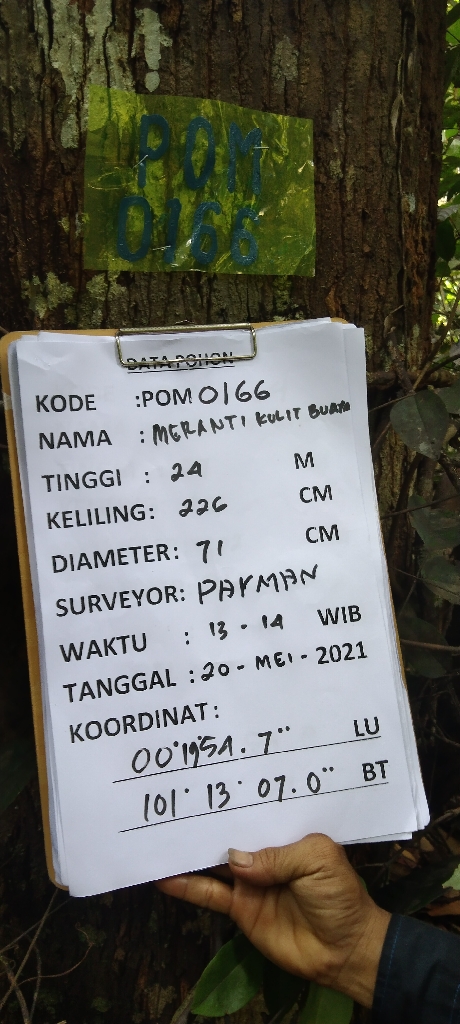 POM
0166
DATA POHON
KODE :POM 0166
NAMA : MERANTI KULIT BUAYA
TINGGI : 24 M
KELILING: 226 CM
DIAMETER: 71 CM
SURVEYOR: PAYMAN
WAKTU : 13 - 14 WIB
TANGGAL : 20 - MEI - 2021
KOORDINAT:
00°19'54.7" LU
101° 13' 07.0" BT